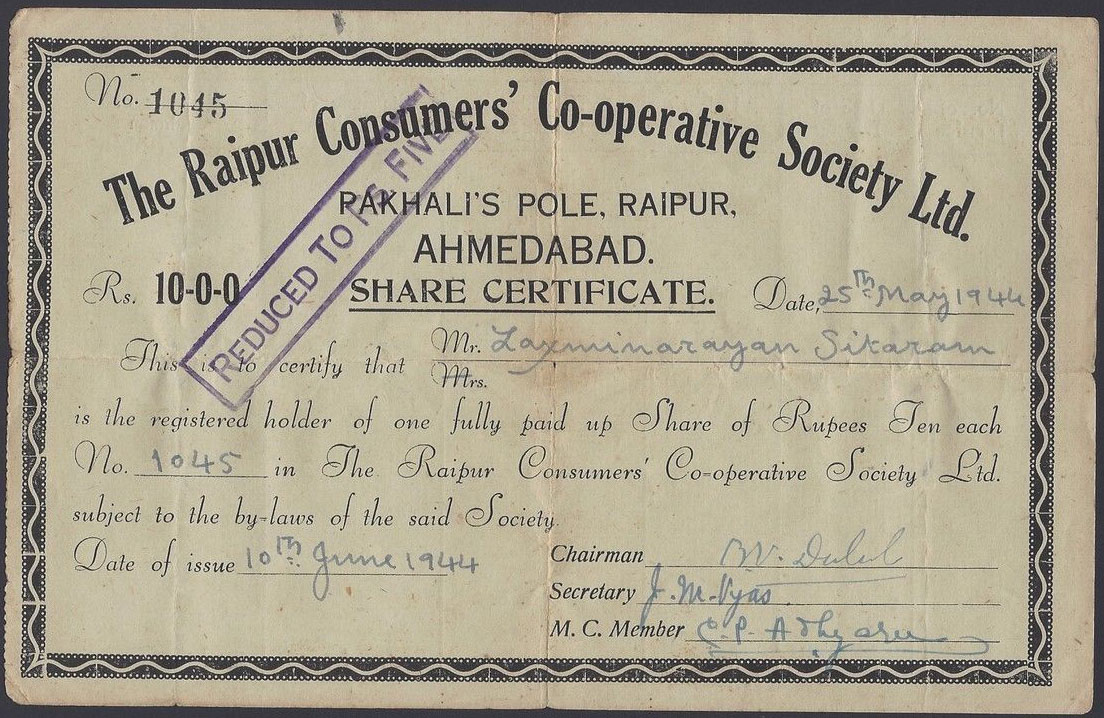 No. 1045
The Raipur Consumers' Co-operative Society Ltd.
PAKHALI'S POLE, RAIPUR,
AHMEDABAD.
REDUCED TO RS. FIVE
Rs. 10-0-0
SHARE CERTIFICATE.
Date, 25th May 1944
This is to certify that Mr. Laxminarayan Sitaram
Mrs.
is the registered holder of one fully paid up Share of Rupees Ten each
No. 1045 in The Raipur Consumers' Co-operative Society Ltd.
subject to the by-laws of the said Society.
Date of issue 10th June 1944
Chairman B.V. Dalal
Secretary J. M. Vyas
M. C. Member C. P. Adhyaru